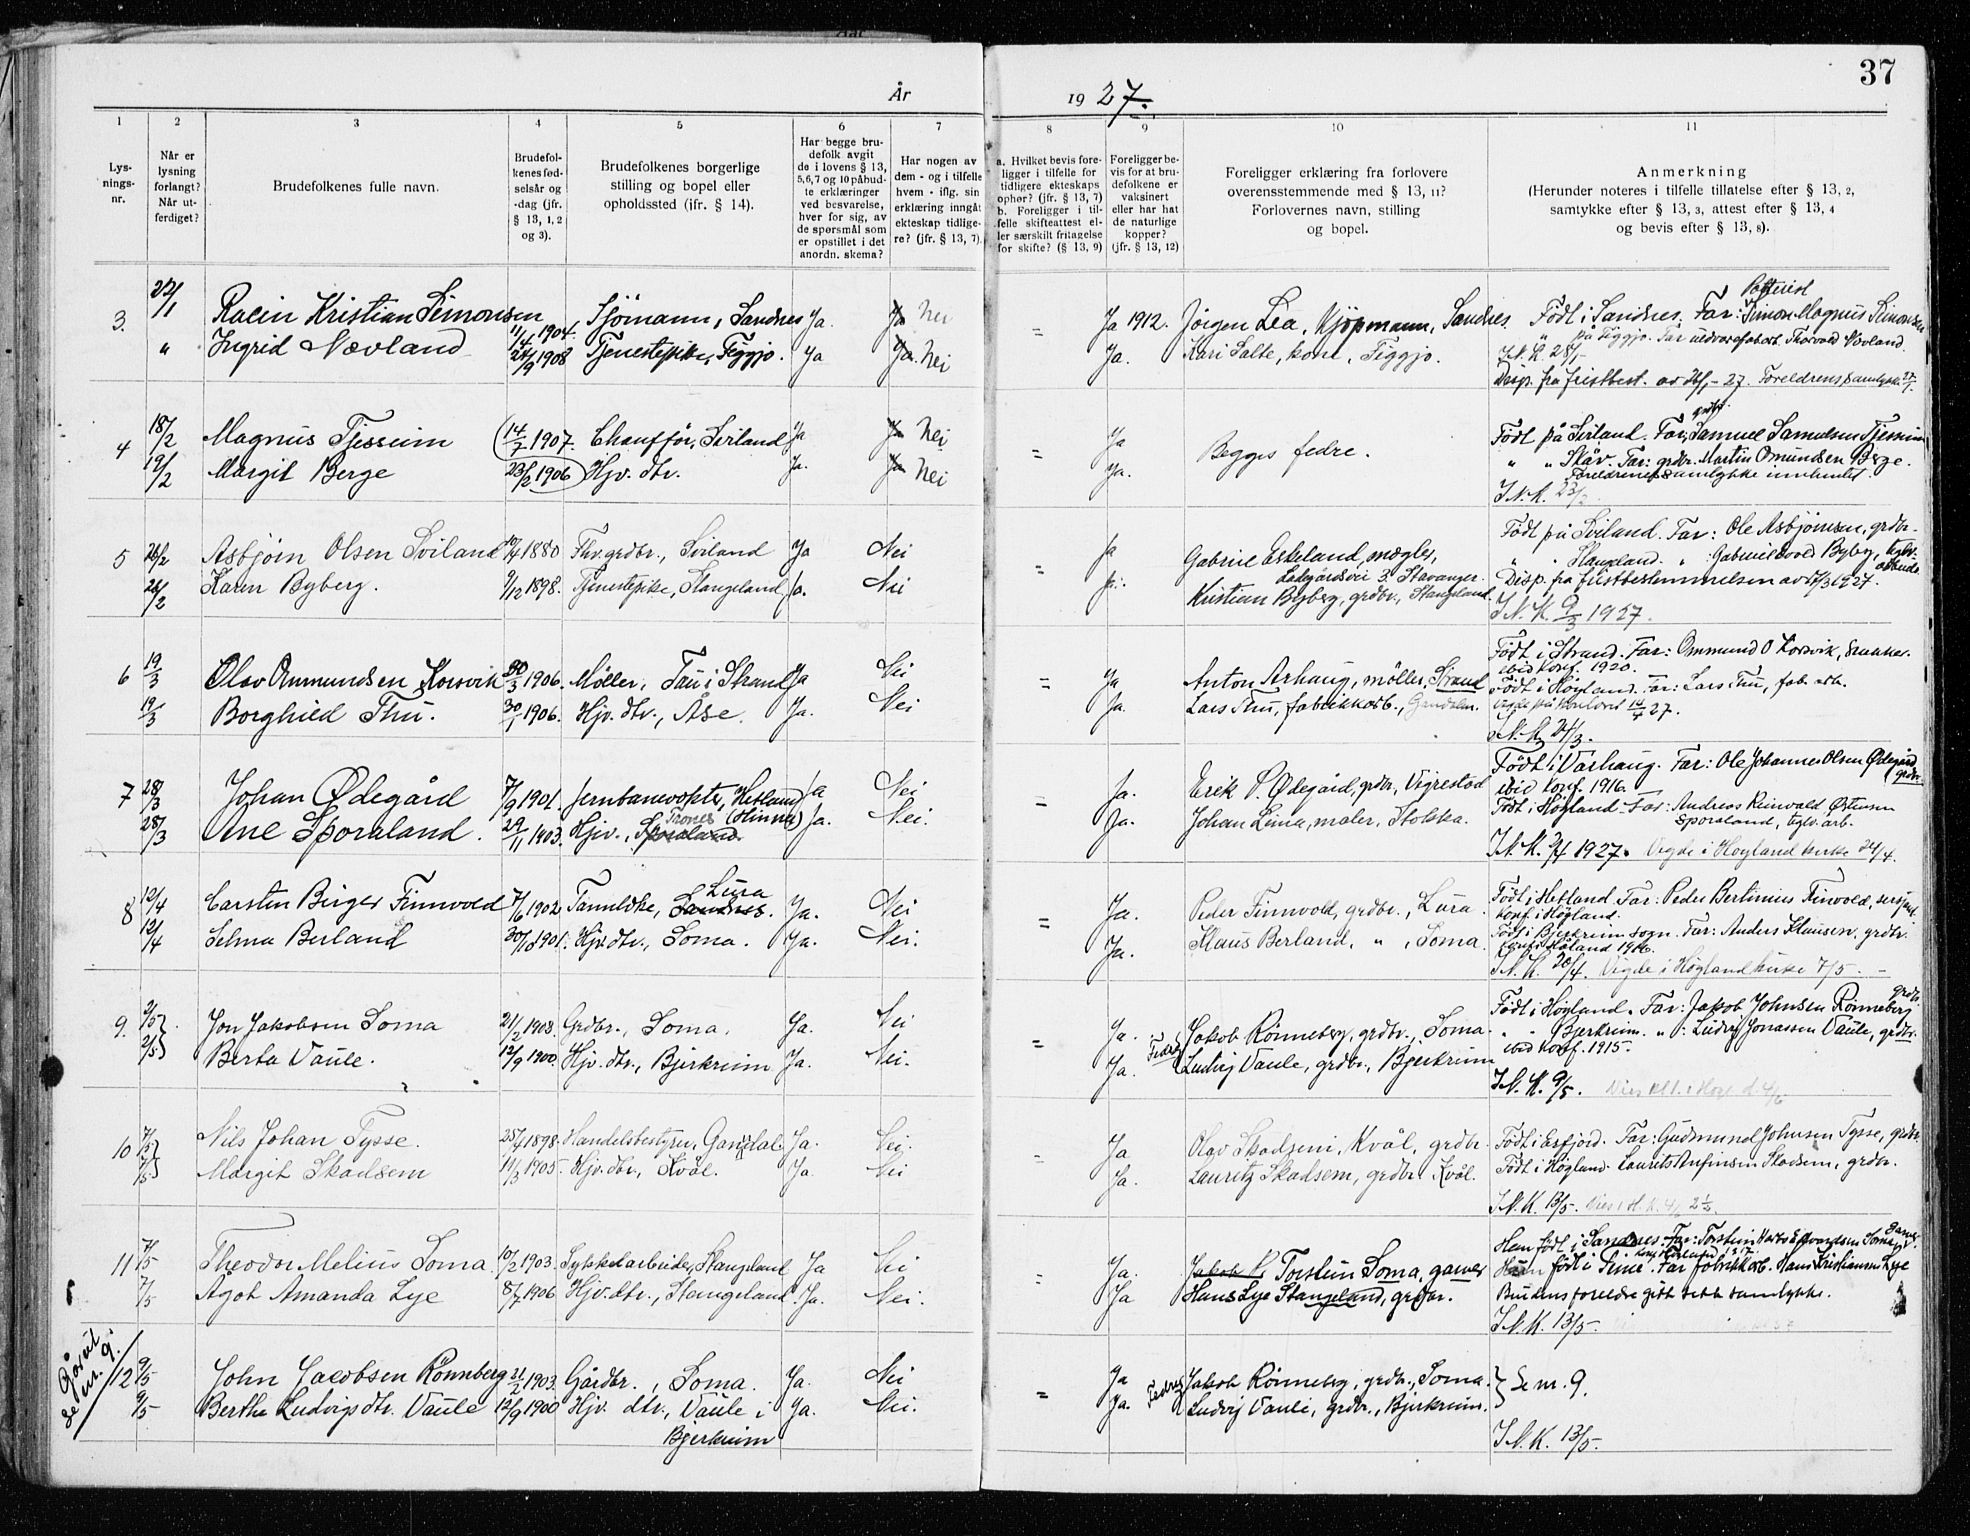 37
År 1927.
1 2 3 4 5 6 7 8 9 10 11
Lys-
nings-
nr.
Når er
lysning
forlangt?
Når ut-
ferdiget?
Brudefolkenes fulle navn.
Brudefol-
kenes fød-
selsår og
-dag (jfr.
§ 13, 1, 2
og 3).
Brudefolkenes borgerlige
stilling og bopel eller
opholdssted (ifr. § 14).
Har begge bru-
defolk avgit
de i lovens § 13,
5,6,7 og 10 påbud-
te erklæringer
ved besvarelse,
hver for sig, av
de spørsmål som
er opstillet i det
anordn. skema?
Har nogen av
dem - og i tilfelle
hvem - iflg. sin
erklæring inngåt
ekteskap tidlige-
re? (jfr. § 13, 7).
a. Hvilket bevis fore-
ligger i tilfelle for
tidligere ekteskaps
ophør? (jfr. § 13, 7)
b. Foreligger i til-
felle skifteattest el-
ler særskilt fritagelse
for skifte? (§ 13, 9)
Foreligger be-
vis for at bru-
defolkene er
vaksinert
eller har hat
de naturlige
kopper?
(jfr. § 13, 12)
Foreligger erklæring fra forlovere
overensstemmende med § 13, 11?
Forlovernes navn, stilling
og bopel.
Anmerkning
(Herunder noteres i tilfelle tillatelse efter § 13, 2,
samtykke efter § 13, 3, attest efter § 13, 4
og bevis efter § 13, 8).
3. 22/1 Kristian Simonsen 11/4 1904. Sjömann, Sandnes Ja. Ja Nei = Ja 1912. Jørgen Lea, Kjöpmann, Sandnes. Født i Sandnes. Far: Simon Magnus Simonsen
" Ingrid Nævland 24/9 1908 Tjenestepike, Figgjo. Ja Ja. Nei Ja. Kari Salte, kone, Figgjo. " på Figgjo. Far Thorvald Nævland.
I.N.K. 28/1
Disp. fra fristbest. av 26/1-27. Foreldrens samtykke 27/1.
4 18/2 Magnus Tjessem 14/7 1907. Chafför, Sviland Ja Ja Nei = Ja Begges fedre. Født på Sviland. Far, grdbr. Samuel Samuelsen Tjessem
19/2 Margit Berge 23/2 1906 Hjv. dtr. Ja. Ja Nei Ja. " " Skåv. Far: grdbr. Martin Omundsen Berge.
Foreldrenes samtykke innhentet.
I.N.K. 23/2.
5 26/2 Asbjørn Olsen Sviland 19/4 1880 Fhv. grdbr., Sviland Ja Nei = Ja Gabriel Eskeland, mægler, Født på Sviland. Far: Ole Asbjørnsen, grdbr.
Ladegårdsvei 3. Stavanger. " " Stangeland. " Gabriel Byberg, teglv.
arbeide
26/2 Karen Byberg. 9/12 1898. Tjenestepike, Stangeland, Ja. Nei Ja. Kristian Byberg, grdbr., Stangeland. Disp. fra fristbestemmelsen av 5/3 1927.
I.N.K. 9/3 1927.
6 19/3 Olav Ommundsen Korsvik 30/3 1906. Møller, Tau i Strand Ja Nei = Ja Anton Arhaug, møller, Strand Født i Strand. Far: Ommund O Korsvik, snekker.
ibid konf. 1920.
19/3 Borghild Thu. 30/1 1906. Hjv. dtr., Åse. Ja. Nei Ja. Lars Thu, fabrikkarb., Gandalen. Født i Høyland. Far: Lars Thu, fab. arb.
14/4 27.
I.N.K. 24/3.
7 28/3 Johan Ødegård 7/9 1901. Jernbanevokter, Hetland (Hinna) Ja Nei = Ja. Erik P. Ødegård, grdbr, Vigrestad Født i Varhaug. Far: Ole Johannes Olsen Ødegård, grdbr.
ibid konf. 1916.
28/3 Ane Sporaland. 29/11 1903. Hjv., Sporaland. Trones Ja. Nei. Ja. Johan Lima, maler, Stolska. Født i Høyland. Far: Andreas Reinvald Østensen
Sporaland, teglv. arb.
I.N.K. 2/4 1927. Vigde i Høyland kirke 24/4.
8 12/4 Carsten Birger Finnvold 7/6 1902. Tannlæke, Sandnes. Lura Ja. Nei = Ja. Peder Finnvold, grdbr., Lura Født i Hetland. Far: Peder Bertinius Finvold, sersjant.
konf. i Høyland.
12/4 Selma Berland 30/1 1901. Hjv. dtr., Soma. Ja. Nei. Ja. Klaus Berland, " , Soma. Født i Bjerkreim sogn. Far: Anders Klausen, grdbr.
konf. i Høland 1916.
I.N.K. 20/4. Vigde i Høyland kirke 7/5.
9. 2/5 Jon Jakobsen Soma 21/2 1903. Grdbr., Soma. Ja. Nei = Ja. Fedre Jakob Rønneberg, grdbr., Soma. Født i Høyland. Far: Jakob Johnsen Rønneberg grdbr.
2/5 Berta Vaule. 12/9 1900. Hjv. dtr., Bjerkreim Ja. Nei. Ja. Ludvig Vaule, grdbr., Bjerkreim " " Bjerkreim. " : Ludvig Jonassen Vaule, grdbr.
ibid konf. 1915.
I.N.K. 9/5.
10 7/5 Nils Johan Tysse. 25/4 1898. Handelsbestyrer, Ganddal. Ja. Nei. = Ja Olav Skadsem, Kvål, grdbr. Født i Esfjord. Far: Gudmund Johnsen Tysse, grdbr.
7/5 Margit Skadsem 11/3 1905. Hjv. dtr., Kvål. Ja. Nei Ja. Lauritz Skadsem, grdbr. Kvål. Født i Høyland. Laurits Anfinsen Skadsem, grdbr.
I.N.K. 13/5.
11 7/5 Theodor Melius Soma. 10/2 1903. Sykkelarbeider, Stangeland Ja Nei = Ja. Jakob P. Torstein Soma, garver Han født i Sandnes. Far: Torstein Soma, garver.
7/5 Agot Amanda Lye 8/7 1906 Hjv. dtr., Stangeland. Ja. Nei. Ja Hans Lye Stangeland, grdbr. Hun født i Time. Far fabrikkarb. Hans Kristiansen Lye
Brudens foreldre gitt sitt samtykke.
I.N.K. 13/5.
Går ut
se nr. 9.
12 9/5 John Jacobsen Rönneberg 21/2 1903. Gårdbr., Soma. Ja. Nei = Ja Fedre Jakob Rønneberg, grdbr., Soma. Se nr. 9.
9/5 Berthe Ludvigsdtr. Vaule 12/9 1900 Hjv. dtr., Vaule i Ja. Nei. Ja. Ludvig Vaule, grdbr., Bjerkreim.
Bjerkreim I.N.K. 13/5.